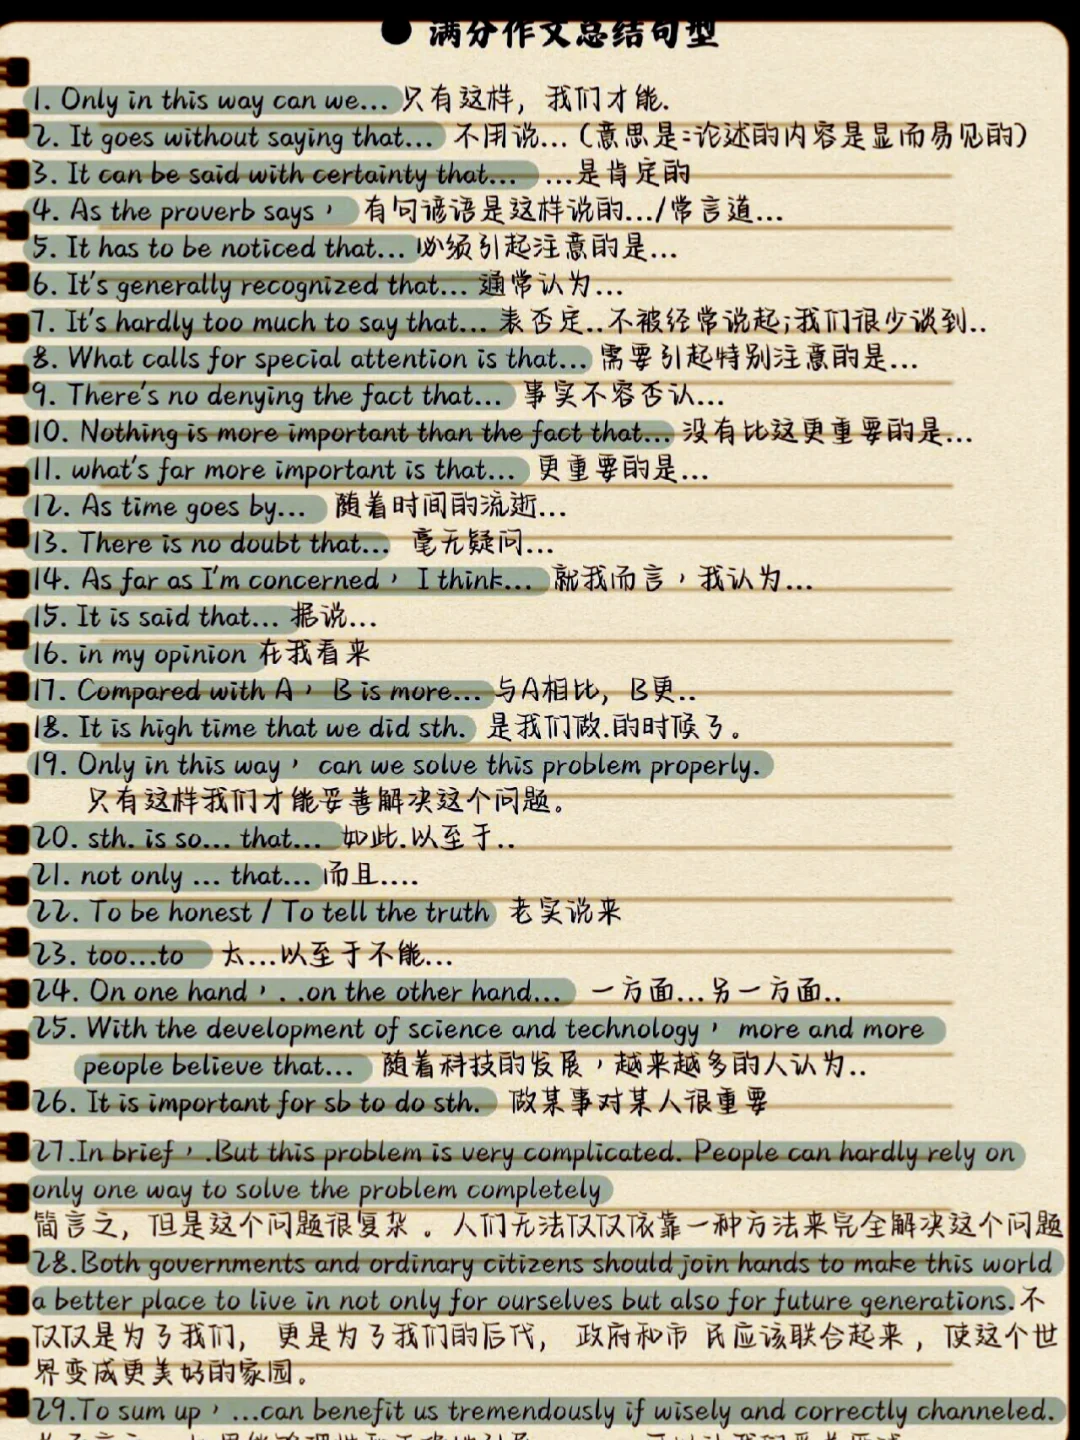 ● 满分作文总结句型
1. Only in this way can we... 只有这样, 我们才能.
2. It goes without saying that... 不用说...(意思是:论述的内容是显而易见的)
3. It can be said with certainty that... ...是肯定的
4. As the proverb says， 有句谚语是这样说的.../常言道...
5. It has to be noticed that... 必须引起注意的是...
6. It's generally recognized that... 通常认为...
7. It's hardly too much to say that... 表否定..不被经常说起;我们很少谈到..
8. What calls for special attention is that... 需要引起特别注意的是...
9. There's no denying the fact that... 事实不容否认...
10. Nothing is more important than the fact that... 没有比这更重要的是...
11. what's far more important is that... 更重要的是...
12. As time goes by... 随着时间的流逝...
13. There is no doubt that... 毫无疑问...
14. As far as I'm concerned， I think... 就我而言，我认为...
15. It is said that... 据说...
16. in my opinion 在我看来
17. Compared with A， B is more... 与A相比, B更..
18. It is high time that we did sth. 是我们做.的时候了。
19. Only in this way， can we solve this problem properly.
只有这样我们才能妥善解决这个问题。
20. sth. is so... that... 如此.以至于..
21. not only ... that... 而且....
22. To be honest / To tell the truth 老实说来
23. too...to 太...以至于不能...
24. On one hand，..on the other hand... 一方面...另一方面..
25. With the development of science and technology， more and more
people believe that... 随着科技的发展，越来越多的人认为..
26. It is important for sb to do sth. 做某事对某人很重要
27.In brief，.But this problem is very complicated. People can hardly rely on
only one way to solve the problem completely
简言之, 但是这个问题很复杂。人们无法仅仅依靠一种方法来完全解决这个问题
28.Both governments and ordinary citizens should join hands to make this world
a better place to live in not only for ourselves but also for future generations.不
仅仅是为了我们, 更是为了我们的后代, 政府和市民应该联合起来, 使这个世
界变成更美好的家园。
29.To sum up，...can benefit us tremendously if wisely and correctly channeled.